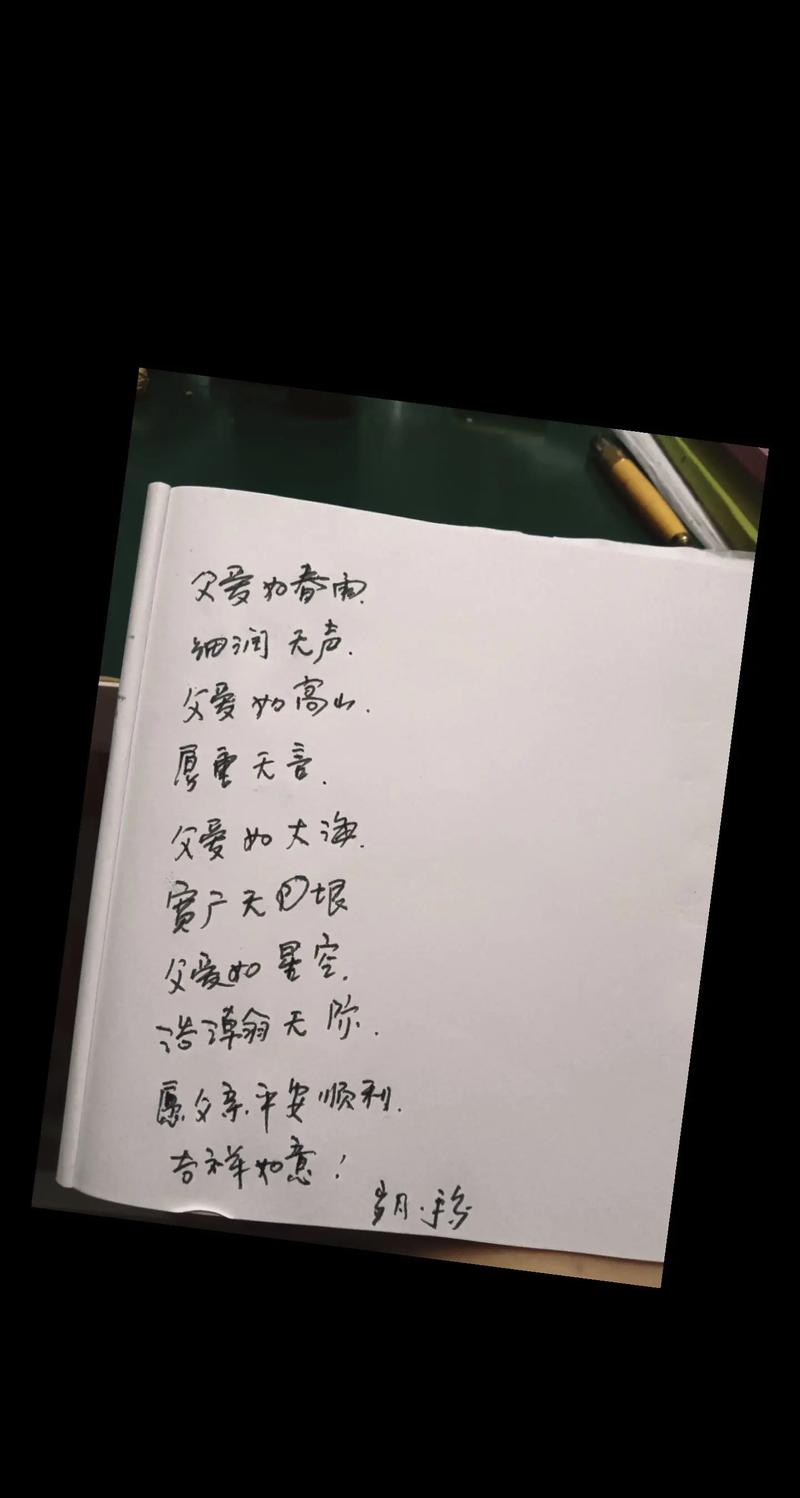 父爱如春雨.
细润无声.
父爱如高山.
厚重无言.
父爱如大海.
宽广无垠
父爱如星空.
浩瀚无际.
愿父亲.平安顺利.
吉祥如意！
岁月.